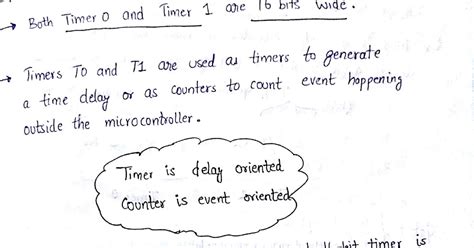 → Both Timer 0 and Timer 1 are 16 bits wide.
→ Timers T0 and T1 are used as timers to generate
a time delay or as counters to count event happening
outside the microcontroller.
Timer is delay oriented
Counter is event oriented
bit timer is